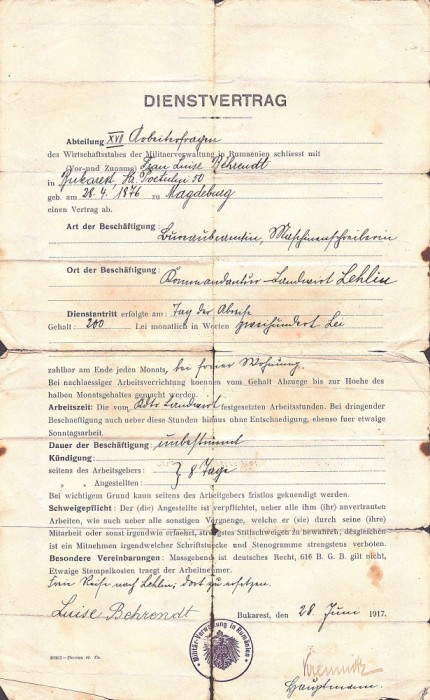 DIENSTVERTRAG
Abteilung XVI Arbeiterfragen
des Wirtschaftsstabes der Militaerverwaltung in Rumaenien schliesst mit
(Vor-und Zuname) Frau Luise Behrendt
in Bukarest, Str. 50
geb. am 28. 4. 1876 zu Magdeburg
einen Vertrag ab.
Art der Beschäftigung:
Bureaubeamtin, Maschinenschreiberin
Ort der Beschäftigung:
Kommandantur-Landwirt Lehliu
Dienstantritt erfolgte am: Tag der Abreise
Gehalt: 200 Lei monatlich in Worten zweihundert Lei
zahlbar am Ende jeden Monats, bei freier Wohnung.
Bei nachlaessiger Arbeitsverrichtung koennen vom Gehalt Abzuege bis zur Hoehe des
halben Monatsgehaltes gemacht werden.
Arbeitszeit: Die vom Kdtr Landwirt festgesetzten Arbeitsstunden. Bei dringender
Beschaeftigung auch ueber diese Stunden hinaus ohne Entschaedigung, ebenso fuer etwaige
Sonntagsarbeit.
Dauer der Beschäftigung: unbestimmt
Kündigung:
seitens des Arbeitsgebers: } 8 Tage
„ „ Angestellten:
Bei wichtigem Grund kann seitens des Arbeitgebers fristlos gekuendigt werden.
Schweigepflicht: Der (die) Angestellte ist verpflichtet, ueber alle ihm (ihr) anvertrauten
Arbeiten, wie auch ueber alle sonstigen Vorgaenge, welche er (sie) durch seine (ihre)
Mitarbeit oder sonst irgendwie erfaehrt, strengstes Stillschweigen zu bewahren, desgleichen
ist ein Mitnehmen irgendwelcher Schriftstuecke und Stenogramme strengstens verboten.
Besondere Vereinbarungen: Massgebend ist deutsches Recht, 616 B. G. B. gilt nicht,
Etwaige Stempelkosten traegt der Arbeitnehmer.
Freie Reise nach Lehliu; dort zu ersetzen.
Luise Behrendt
Bukarest, den 28. Juni 1917.
Militär-Verwaltung in Rumänien
Kremnitz
Hauptmann.